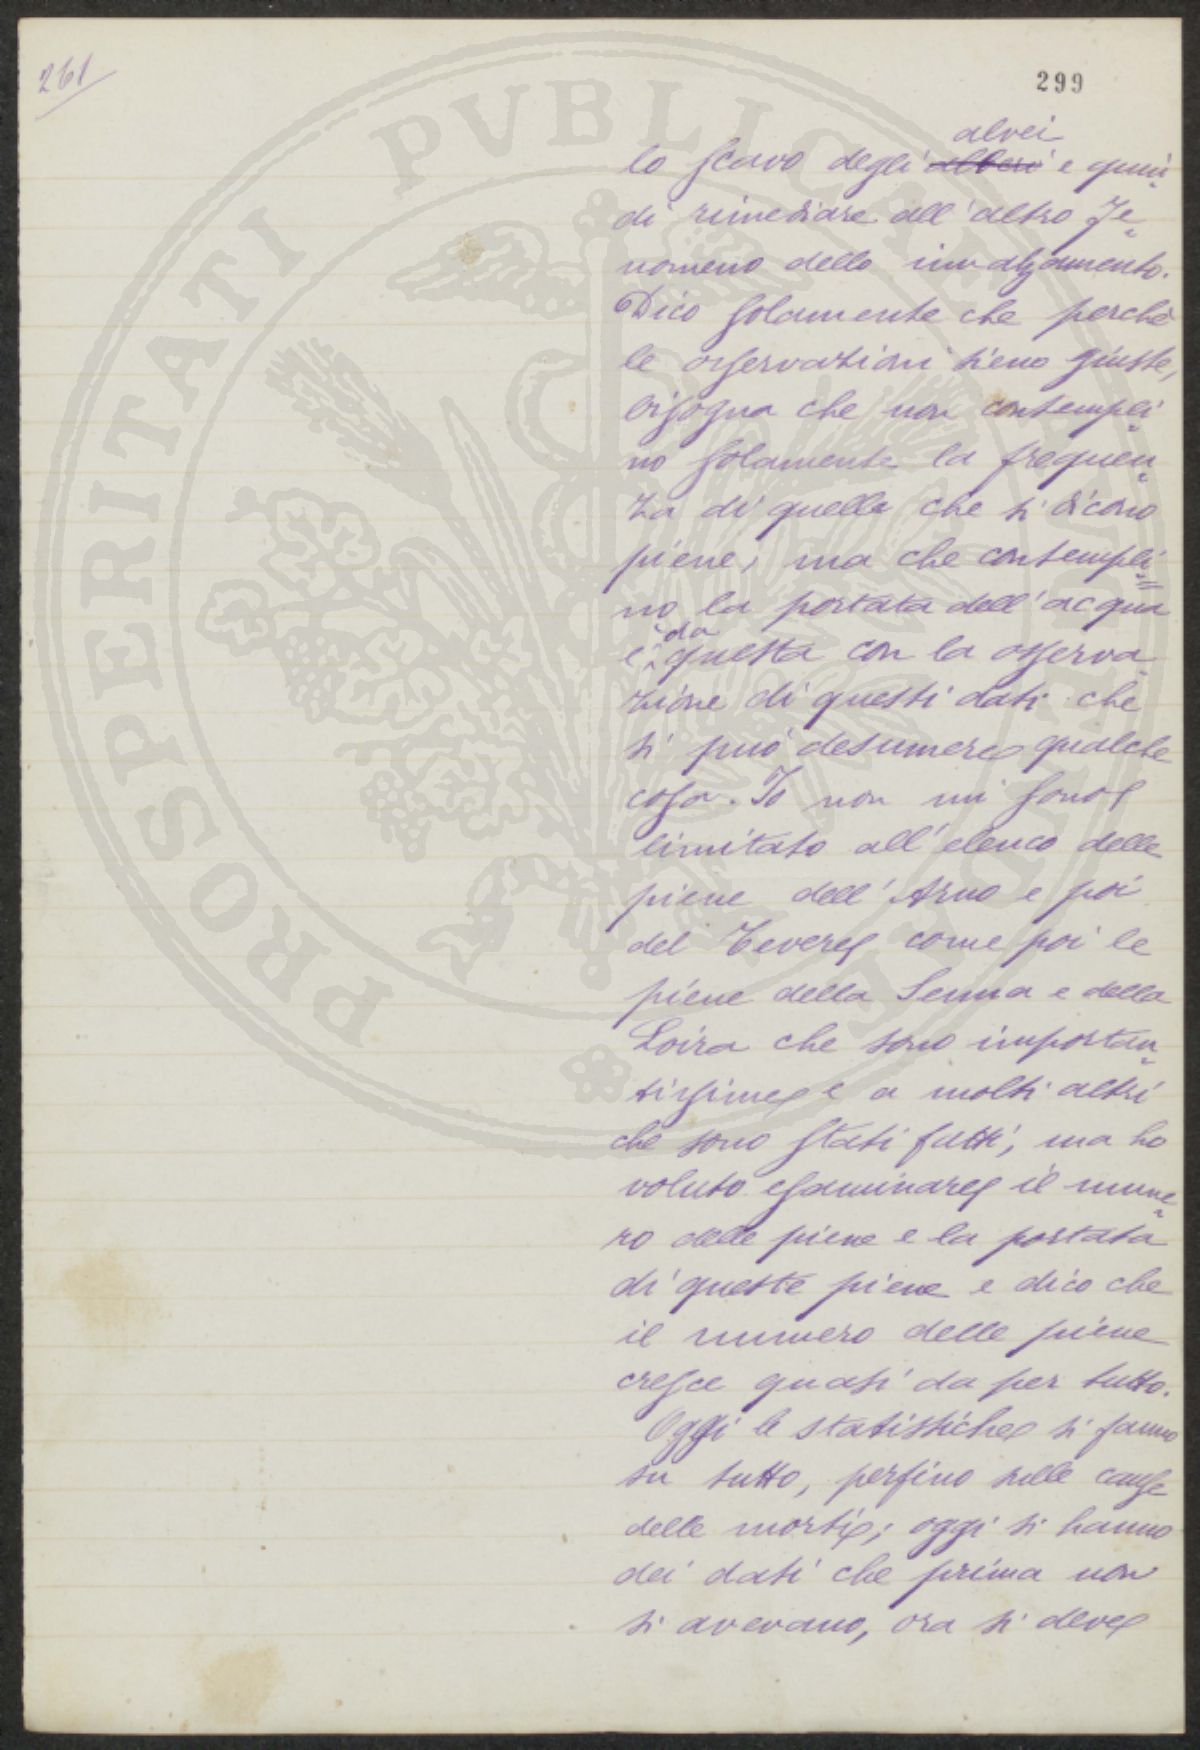 261
299
alvei
lo scavo degli alberi e quin
di rimediare all'altro fe
nomeno dello innalzamento.
Dico solamente che perchè
le osservazioni sieno giuste,
bisogna che non contempli
no solamente la frequen
za di quelle che si dicono
piene, ma che contempli
no la portata dell'acqua
da
e questa con la osserva
zione di questi dati che
si può desumere qualche
cosa. Io non mi sono
limitato all'elenco delle
piene dell'Arno e poi
del Tevere come poi le
piene della Senna e della
Loira che sono importan
tissime e a molti altri
che sono stati fatti, ma ho
voluto esaminare il nume
ro delle piene e la portata
di queste piene e dico che
il numero delle piene
cresce quasi da per tutto.
Oggi le statistiche si fanno
su tutto, perfino sulle cause
delle morti; oggi si hanno
dei dati che prima non
si avevano, ora si deve
PUBLICAE PROSPERITATI